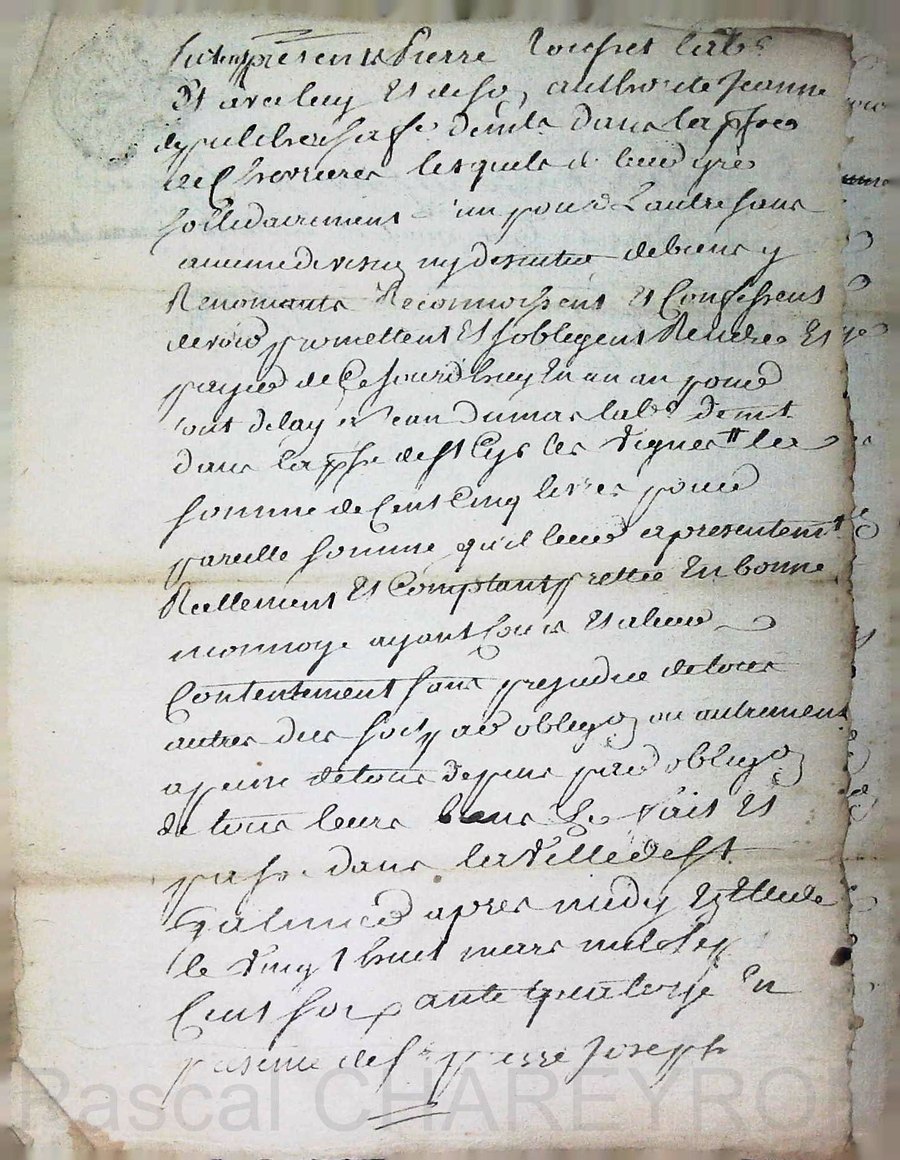 presents Pierre labr
Et avec luy Et de son authorité Jeanne
sa fe demts dans la psse
de Chevrieres lesquels de leurs grés
sollidairement l'un pour l'autre sans
aucune division ny de biens y
Renonçants Reconnoissent Et Confessent
devoir promettent Et soblegent Rendre Et
payer de Ce jourdhuy En un an pour
tout delay a Jean Dumas labr demt
dans la psse de st les vignes la
somme de Cent Cinq livres pour
pareille somme qu'il leur a presentemt
Reellement Et Comptant prettée En bonne
monnoye ayant Cours Et a leur
Contentement sans prejudice de tous
autres dus soit par obligon ou autrement
a peine de tous depens par obligon
de tous leurs biens &c fait Et
passé dans la Ville de st
galmier apres midy Estude
le vingt huit mars mil sept
Cent soixante quatorze En
presence de sr pierre Joseph
Pascal CHAREYRON